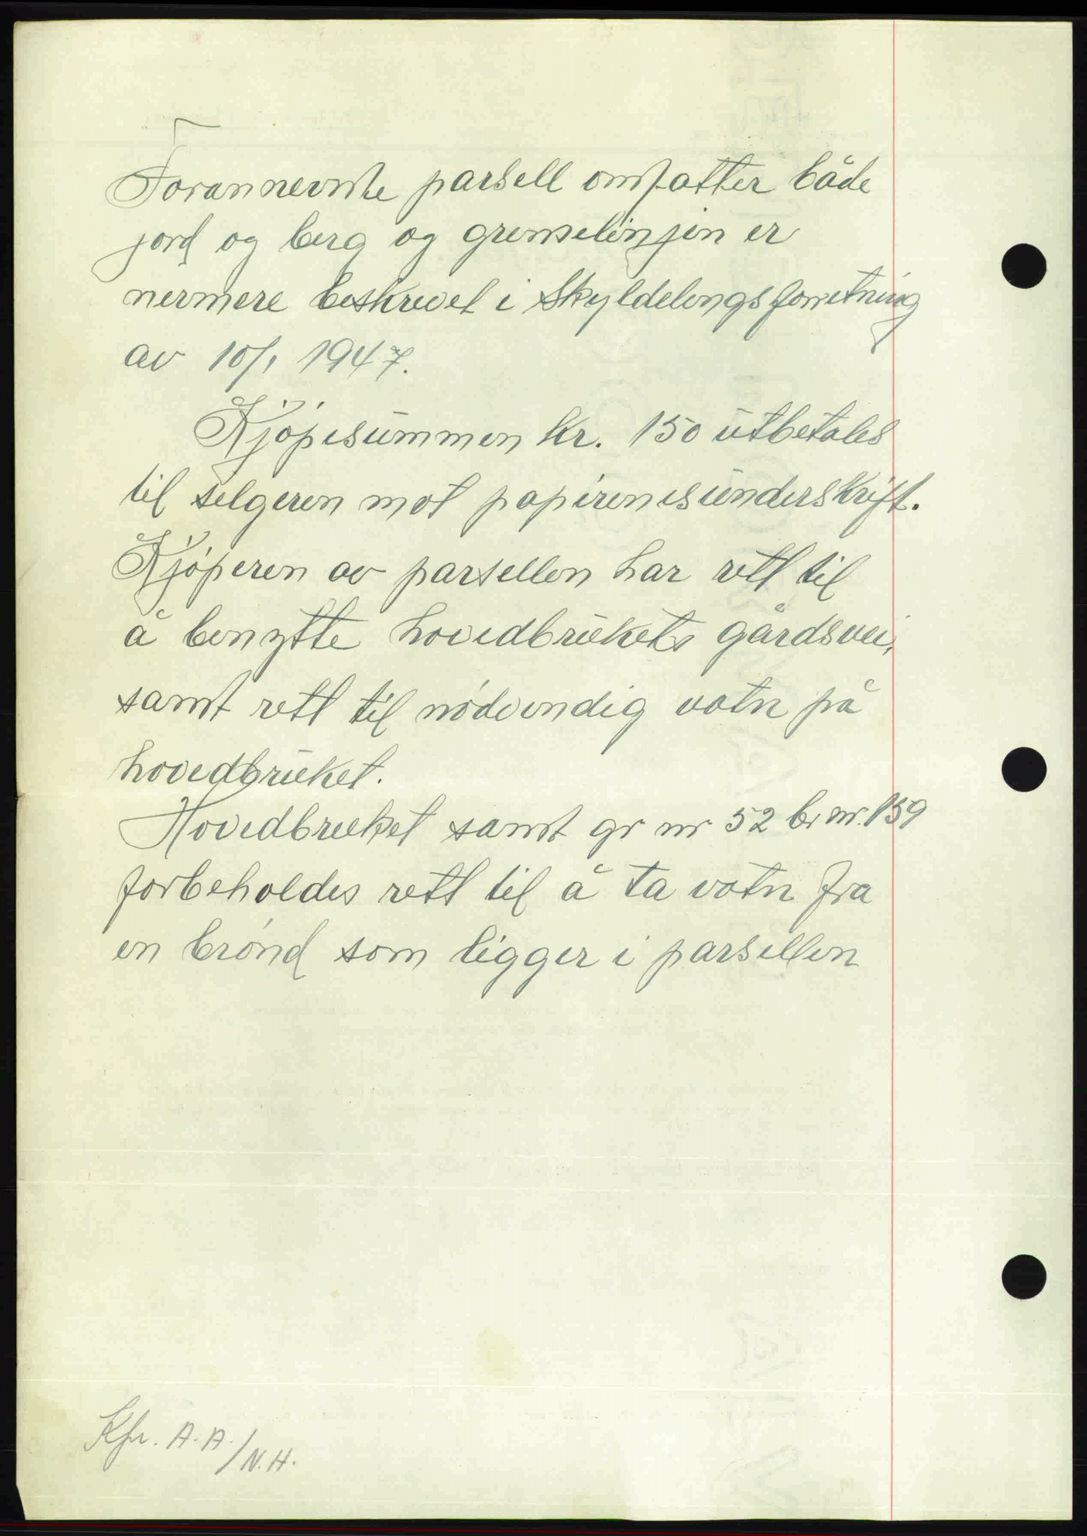 Forannevnte parsell omfatter både
jord og berg og grenselinjen er
nermere beskrevet i Skyldelingsforretning
av 10/1 1947.
Kjøpesummen kr. 150 utbetales
til selgeren mot papirenesunderskrift.
Kjøperen av parsellen har rett til
å benytte hovedbrukets gårdsvei,
samt rett til nødvendig vatn på
hovedbruket.
Hovedbruket samt gr nr 52 br nr. 159
forbeholdes rett til å ta vatn fra
en brønd som ligger i parsellen
Kfr. A.A./N.H.